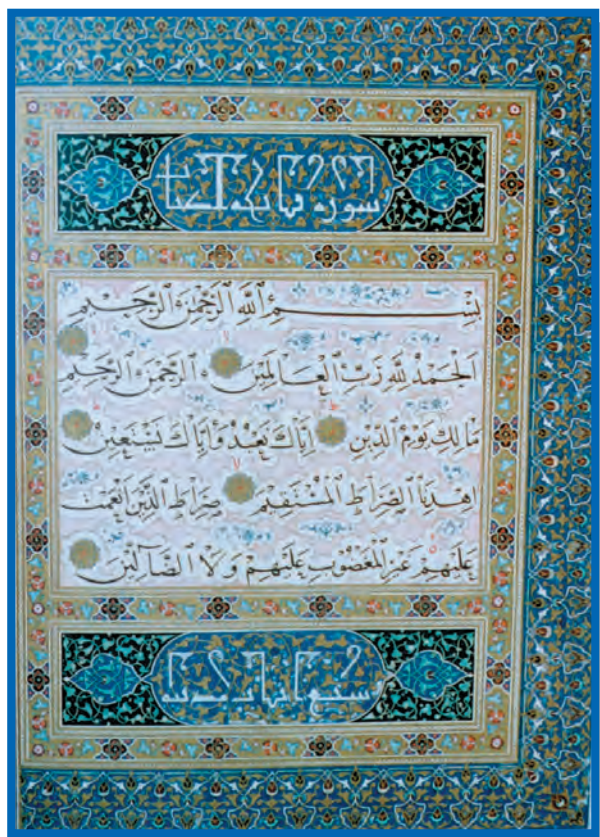 سورة فاتحة الكتاب
بِسْمِ ٱللَّهِ ٱلرَّحْمَٰنِ ٱلرَّحِيمِ
اَلْحَمْدُ لِلَّهِ رَبِّ ٱلْعَالَمِينَ ٱلرَّحْمَٰنِ ٱلرَّحِيمِ
مَالِكِ يَوْمِ ٱلدِّينِ اِيَّاكَ نَعْبُدُ وَاِيَّاكَ نَسْتَعِينُ
اِهْدِنَا ٱلصِّرَاطَ ٱلْمُسْتَقِيمَ صِرَاطَ ٱلَّذِينَ اَنْعَمْتَ
عَلَيْهِمْ غَيْرِ ٱلْمَغْضُوبِ عَلَيْهِمْ وَلَا ٱلضَّآلِّينَ